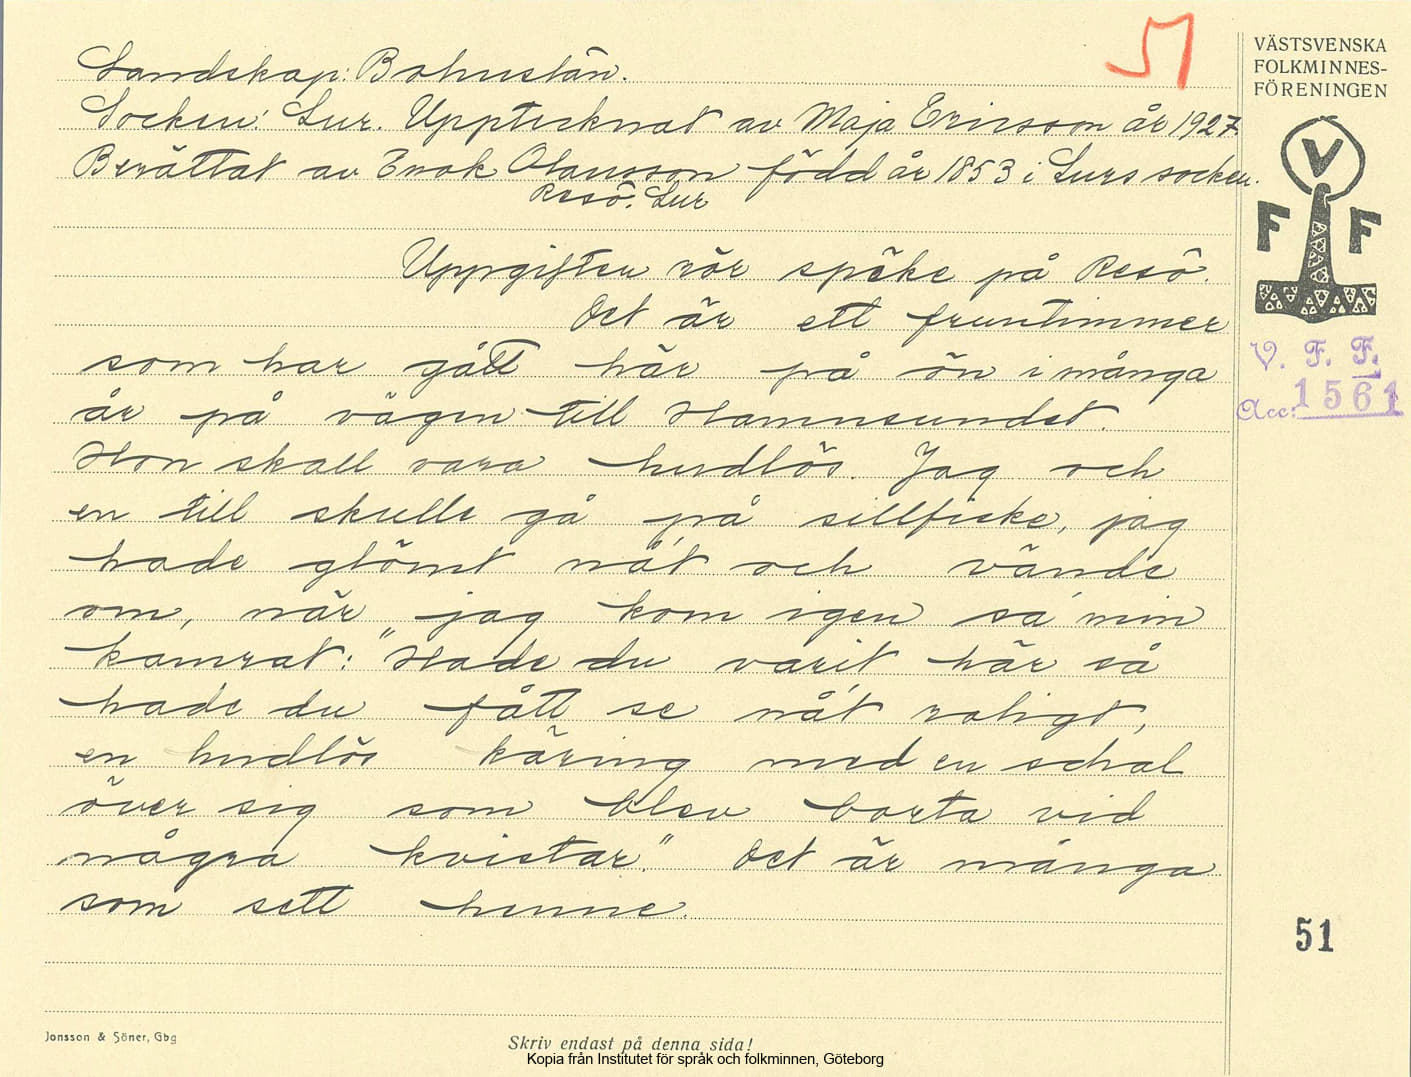 Landskap: Bohuslän.
Socken: Lur. Upptecknat av Maja Ericsson år 1927.
Berättat av Enok Olausson född år 1853 i Lurs socken.
Resö. Lur
Uppgiften rör spöke på Resö.
Det är ett fruntimmer
som har gått här på ön i många
år på vägen till Hamnsundet.
Hon skall vara hudlös. Jag och
en till skulle gå på sillfiske, jag
hade glömt nå't och vände
om, när jag kom igen sa' min
kamrat: "Hade du varit här så
hade du fått se nå't roligt,
en hudlös käring med en schal
över sig som blev borta vid
några kvistar." Det är många
som sett henne.
51
VÄSTSVENSKA
FOLKMINNES-
FÖRENINGEN
V
F F
V. F. F.
Acc: 1561
51
Jonsson & Söner, Gbg
Skriv endast på denna sida!
Kopia från Institutet för språk och folkminnen, Göteborg